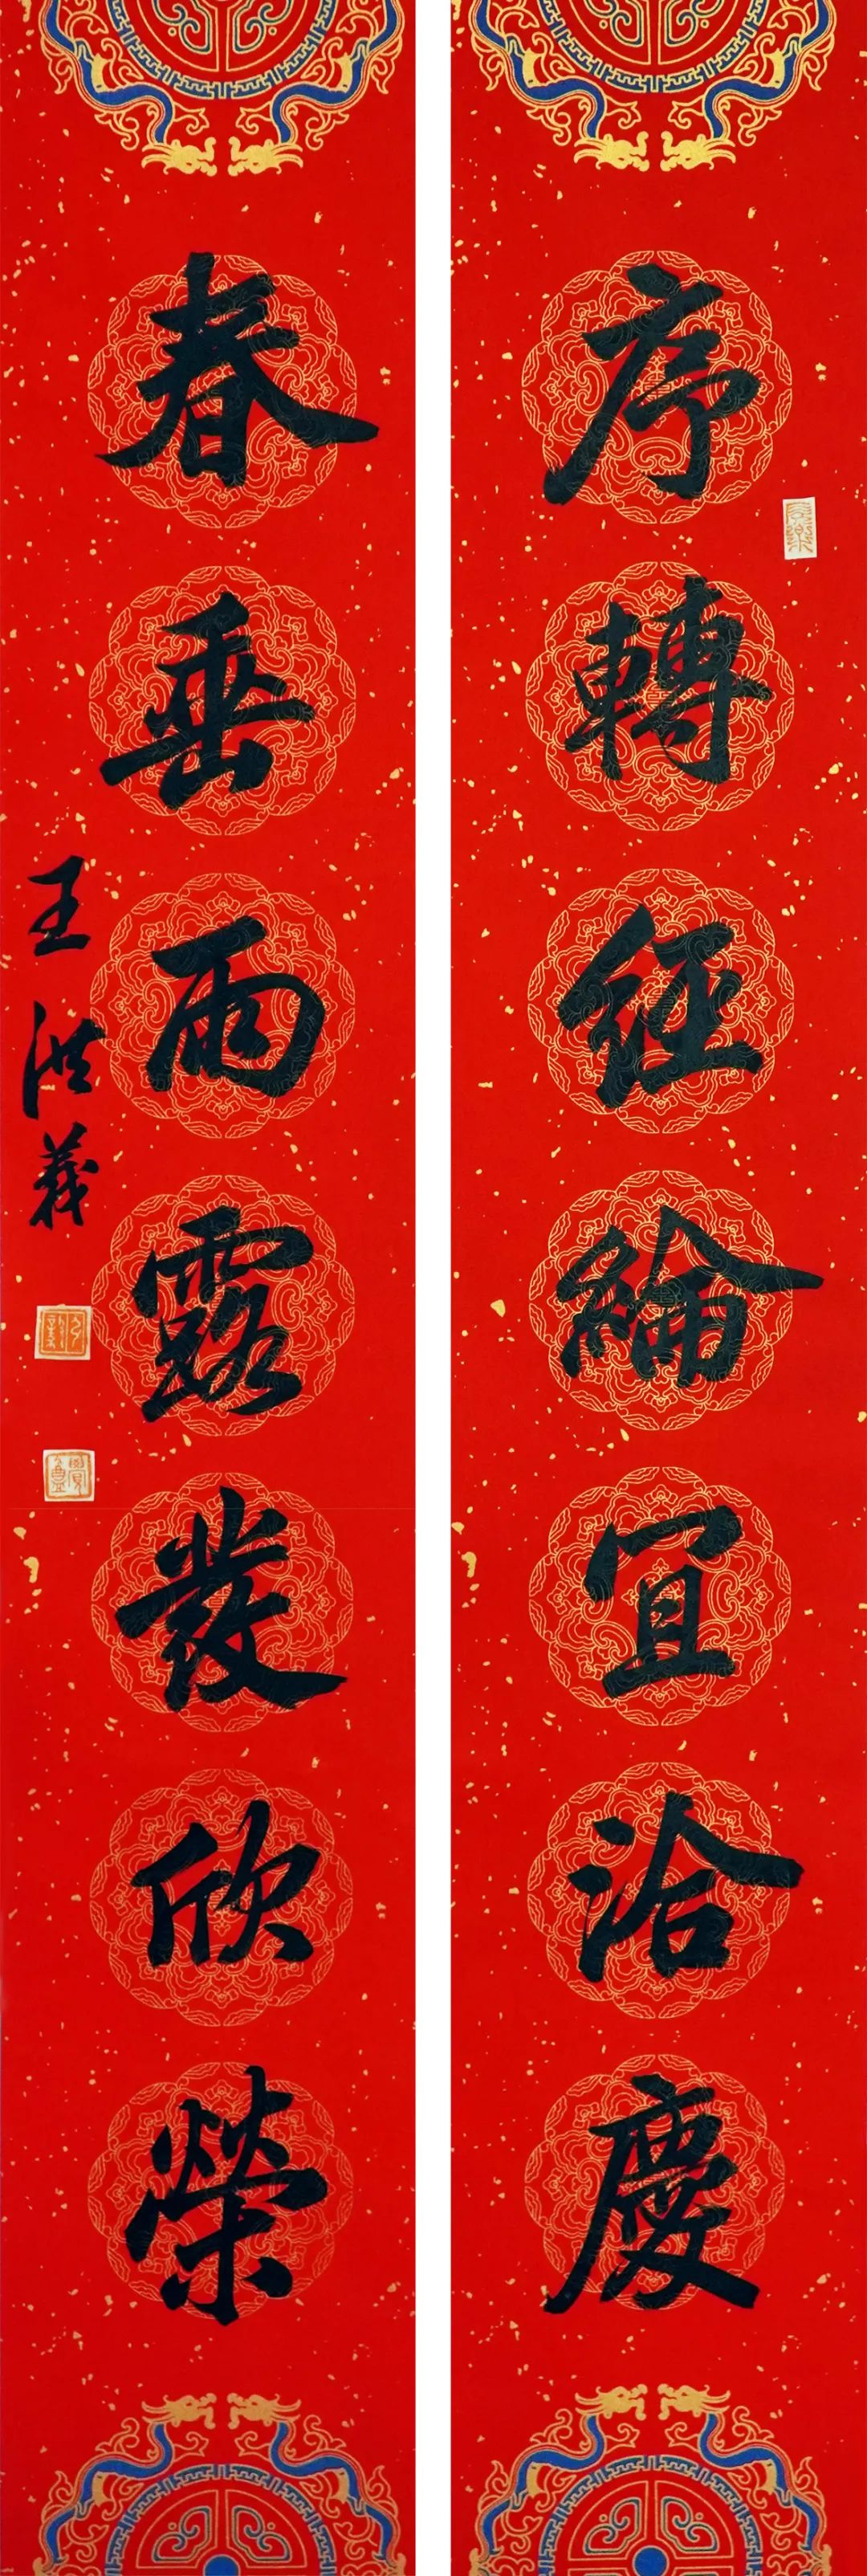 序轉經綸宜洽慶
春垂雨露發欣榮
王洪義